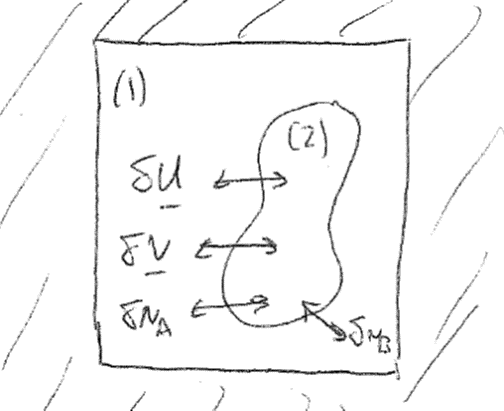 (1)
(2)
δU
δV
δN_A
δN_B